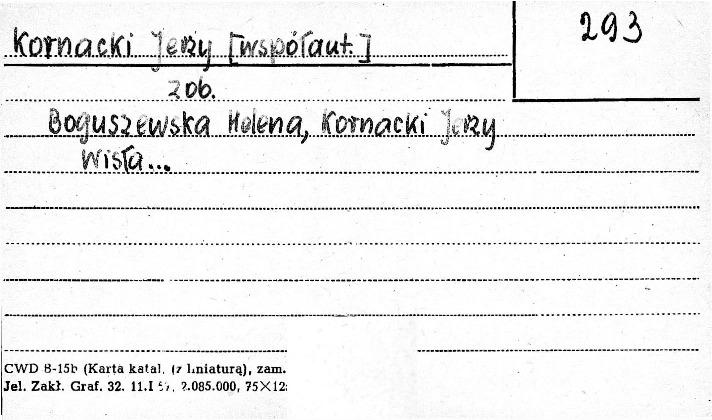 293
Kornacki Jerzy [współaut.]
zob.
Boguszewska Helena, Kornacki Jerzy
Wisła...
CWD 8-15b (Karta katal. (z liniaturą), zam.
Jel. Zakł. Graf. 32. 11.I 2.085.000, 75×12